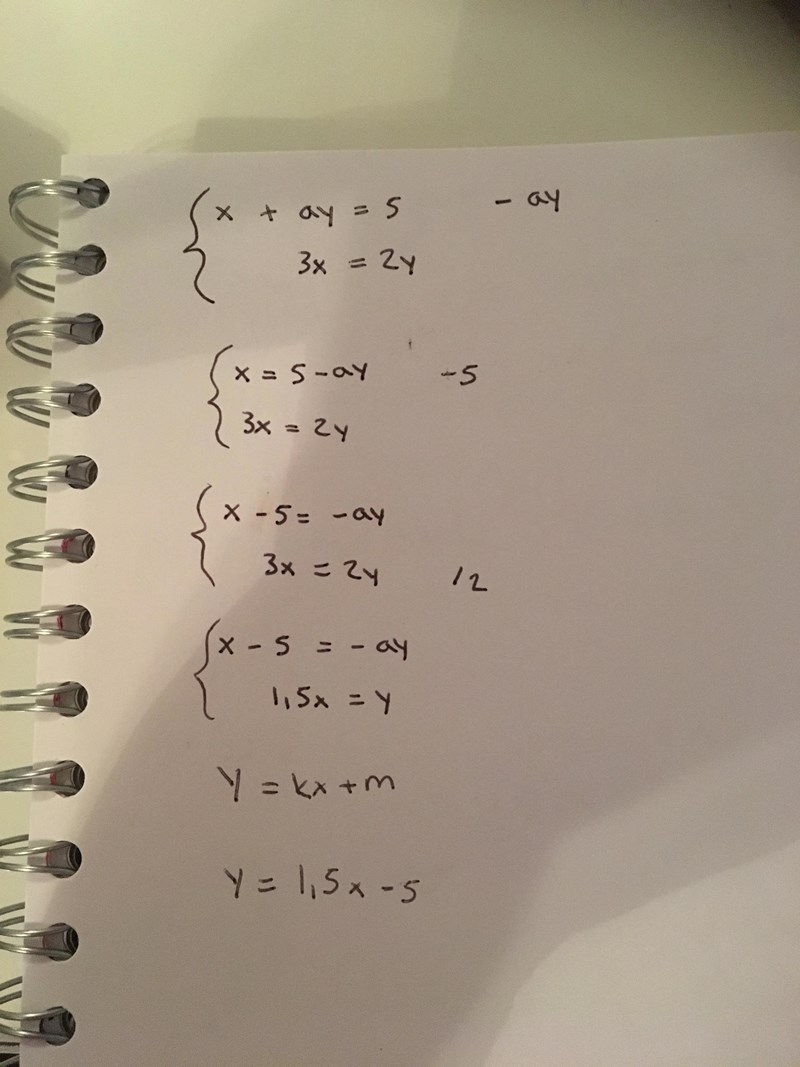 x + ay = 5 - ay
3x = 2y
x = 5 - ay -5
3x = 2y
x - 5 = - ay
3x = 2y /2
x - 5 = - ay
1,5x = y
y = kx + m
y = 1,5x - 5